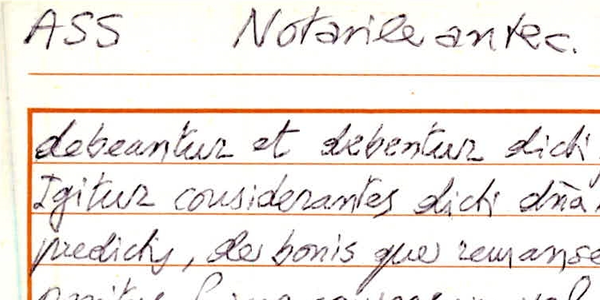 ASS Notarile antec.
debeantur et debentur dicti
Igitur considerantes dicti dña
predictis, de bonis que remanse